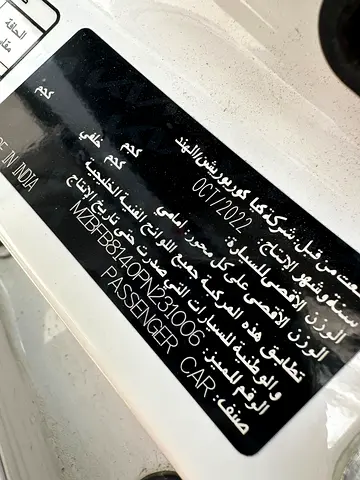 الحافة
صنعت من قبل: شركة كيا كوربوريشن/الهند
سنة وشهر الانتاج: OCT/2022
الوزن الأقصى للسيارة: كجم
الوزن الأقصى على كل محور: أمامي كجم خلفي كجم
تطابق هذه المركبة جميع اللوائح الفنية الخليجية
والوطنية للسيارات التي صدرت حتى تاريخ الانتاج
الرقم المميز: MZBFB8140PN231006
صنف: PASSENGER CAR
IN INDIA